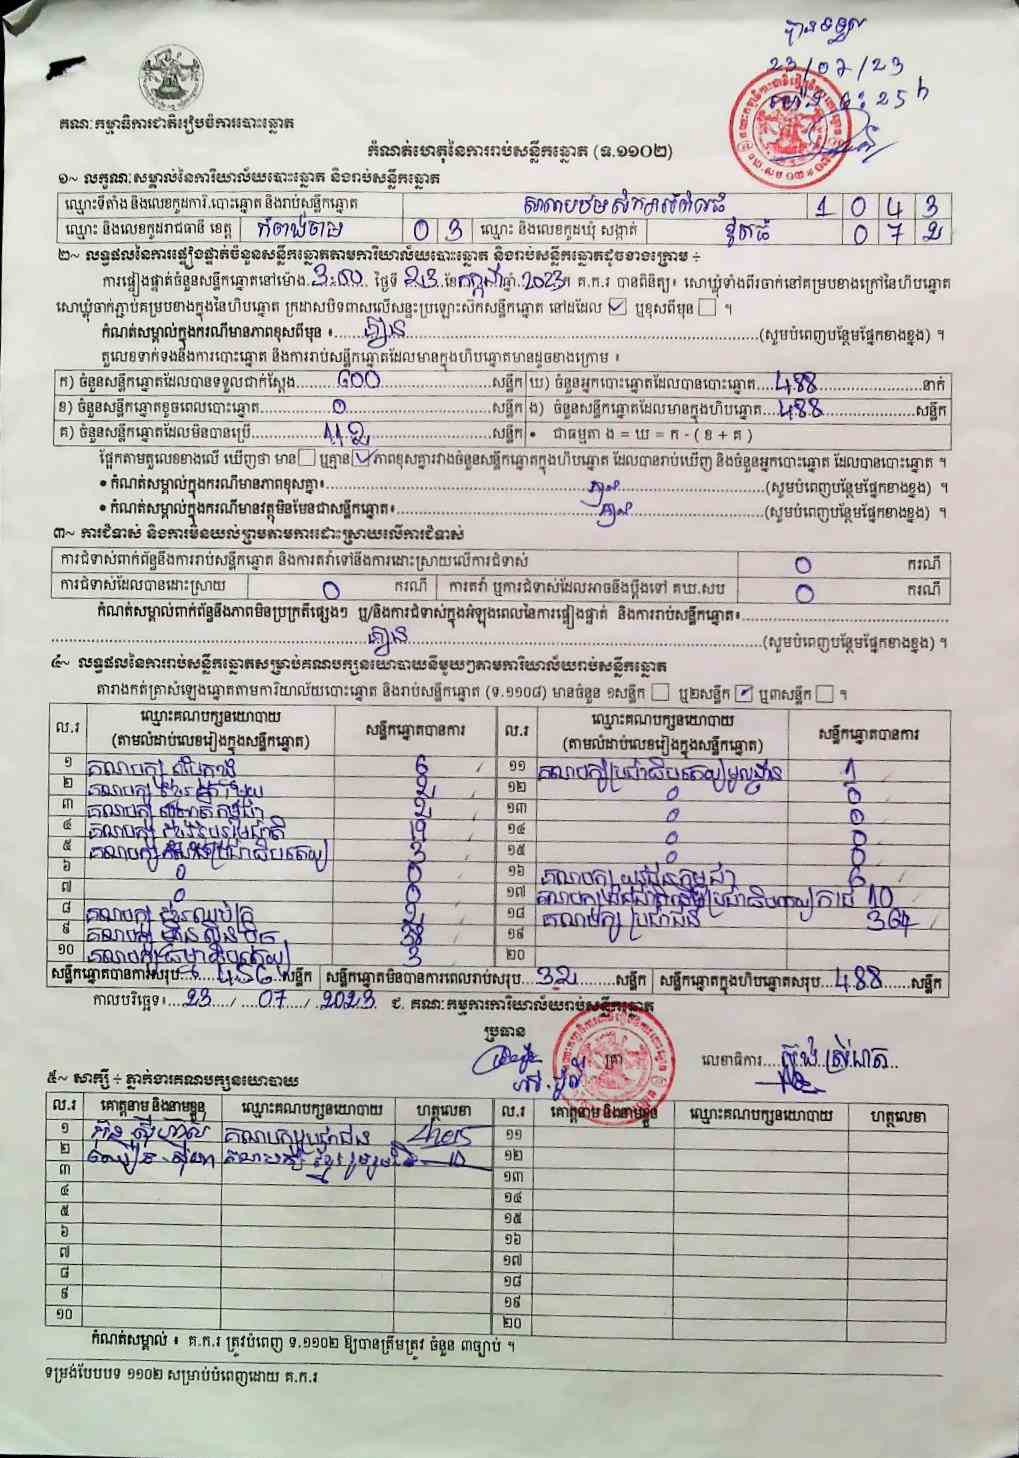 បានទទួល
23/07/23
ម៉ោង 6:25h
គណៈកម្មាធិការជាតិរៀបចំការបោះឆ្នោត
កំណត់ហេតុនៃការរាប់សន្លឹកឆ្នោត (ទ.១១០២)
១~ លក្ខណៈសម្គាល់នៃការិយាល័យបោះឆ្នោត និងរាប់សន្លឹកឆ្នោត
ឈ្មោះទីតាំង និងលេខកូដការិ.បោះឆ្នោត និងរាប់សន្លឹកឆ្នោត 1043
ឈ្មោះ និងលេខកូដរាជធានី ខេត្ត កំពង់ចាម 03 ឈ្មោះ និងលេខកូដឃុំ សង្កាត់ 072
២~ លទ្ធផលនៃការផ្ទៀងផ្ទាត់ចំនួនសន្លឹកឆ្នោតតាមការិយាល័យបោះឆ្នោត និងរាប់សន្លឹកឆ្នោតដូចខាងក្រោម ÷
ការផ្ទៀងផ្ទាត់ចំនួនសន្លឹកឆ្នោតនៅម៉ោង 3:50 ថ្ងៃទី 23 ខែ កក្កដា ឆ្នាំ 2023។ គ.ក.រ បានពិនិត្យ៖ សោឃ្លុំទាំងពីរចាក់នៅគម្របខាងក្រៅនៃហិបឆ្នោត
សោឃ្លុំចាក់ភ្ជាប់គម្របខាងក្នុងនៃហិបឆ្នោត ក្រដាសបិទពាសលើសន្ទះប្រឡោះសឹកសន្លឹកឆ្នោត នៅដដែល ☑ ឬខុសពីមុន ☐ ។
កំណត់សម្គាល់ក្នុងករណីមានភាពខុសពីមុន ៖ គ្មាន (សូមបំពេញបន្ថែមផ្នែកខាងខ្នង) ។
តួលេខទាក់ទងនឹងការបោះឆ្នោត និងការរាប់សន្លឹកឆ្នោតដែលមានក្នុងហិបឆ្នោតមានដូចខាងក្រោម ៖
ក) ចំនួនសន្លឹកឆ្នោតដែលបានទទួលជាក់ស្តែង 600 សន្លឹក ឃ) ចំនួនអ្នកបោះឆ្នោតដែលបានបោះឆ្នោត 488 នាក់
ខ) ចំនួនសន្លឹកឆ្នោតខូចពេលបោះឆ្នោត 0 សន្លឹក ង) ចំនួនសន្លឹកឆ្នោតដែលមានក្នុងហិបឆ្នោត 488 សន្លឹក
គ) ចំនួនសន្លឹកឆ្នោតដែលមិនបានប្រើ 112 សន្លឹក • ជាធម្មតា ង = ឃ = ក - ( ខ + គ )
ផ្អែកតាមតួលេខខាងលើ ឃើញថា មាន ☐ ឬគ្មាន ☑ ភាពខុសគ្នារវាងចំនួនសន្លឹកឆ្នោតក្នុងហិបឆ្នោត ដែលបានរាប់ឃើញ និងចំនួនអ្នកបោះឆ្នោត ដែលបានបោះឆ្នោត ។
• កំណត់សម្គាល់ក្នុងករណីមានភាពខុសគ្នា៖ គ្មាន (សូមបំពេញបន្ថែមផ្នែកខាងខ្នង) ។
• កំណត់សម្គាល់ក្នុងករណីមានវត្ថុមិនមែនជាសន្លឹកឆ្នោត៖ គ្មាន (សូមបំពេញបន្ថែមផ្នែកខាងខ្នង) ។
៣~ ការជំទាស់ និងការមិនយល់ព្រមតាមការដោះស្រាយលើការជំទាស់
ការជំទាស់ពាក់ព័ន្ធនឹងការរាប់សន្លឹកឆ្នោត និងការតវ៉ាទៅនឹងការដោះស្រាយលើការជំទាស់ 0 ករណី
ការជំទាស់ដែលបានដោះស្រាយ 0 ករណី ការតវ៉ា ឬការជំទាស់ដែលអាចនឹងប្តឹងទៅ គឃ.សប 0 ករណី
កំណត់សម្គាល់ពាក់ព័ន្ធនឹងភាពមិនប្រក្រតីផ្សេងៗ ឬ/និងការជំទាស់ក្នុងអំឡុងពេលនៃការផ្ទៀងផ្ទាត់ និងការរាប់សន្លឹកឆ្នោត៖
គ្មាន (សូមបំពេញបន្ថែមផ្នែកខាងខ្នង) ។
៤~ លទ្ធផលនៃការរាប់សន្លឹកឆ្នោតសម្រាប់គណបក្សនយោបាយនីមួយៗតាមការិយាល័យរាប់សន្លឹកឆ្នោត
តារាងកត់ត្រាសំឡេងឆ្នោតតាមការិយាល័យបោះឆ្នោត និងរាប់សន្លឹកឆ្នោត (ទ.១១០៨) មានចំនួន ១សន្លឹក ☐ ឬ២សន្លឹក ☑ ឬ៣សន្លឹក ☐ ។
ល.រ ឈ្មោះគណបក្សនយោបាយ (តាមលំដាប់លេខរៀងក្នុងសន្លឹកឆ្នោត) សន្លឹកឆ្នោតបានការ ល.រ ឈ្មោះគណបក្សនយោបាយ (តាមលំដាប់លេខរៀងក្នុងសន្លឹកឆ្នោត) សន្លឹកឆ្នោតបានការ
១ គណបក្ស 6 ១១ គណបក្សប្រជាធិបតេយ្យមូលដ្ឋាន 1
២ គណបក្ស ខ្មែរ 2 ១២ 0 0
៣ គណបក្ស សញ្ជាតិកម្ពុជា 2 ១៣ 0 0
៤ គណបក្ស ខ្មែររួបរួមជាតិ 19 ១៤ 0 0
៥ គណបក្ស ប្រជាធិបតេយ្យ 3 ១៥ 0 0
៦ 0 0 ១៦ គណបក្ស យុវជនកម្ពុជា 6
៧ 0 0 ១៧ គណបក្ស 10
៨ គណបក្ស ខ្មែរឈប់ក្រ ១៨ គណបក្ស ប្រជាជន 364
៩ គណបក្ស ហ្វ៊ុនស៊ិនប៉ិច 38 ១៩
១០ គណបក្ស ធម្មាធិបតេយ្យ 3 ២០
សន្លឹកឆ្នោតបានការសរុប 456 សន្លឹក សន្លឹកឆ្នោតមិនបានការពេលរាប់សរុប 32 សន្លឹក សន្លឹកឆ្នោតក្នុងហិបឆ្នោតសរុប 488 សន្លឹក
កាលបរិច្ឆេទ៖ 23 / 07 / 2023 ជ. គណៈកម្មការការិយាល័យរាប់សន្លឹកឆ្នោត
ប្រធាន
ត្រា លេខាធិការ
៥~ សាក្សី ÷ ភ្នាក់ងារគណបក្សនយោបាយ
ល.រ គោត្តនាម និងនាមខ្លួន ឈ្មោះគណបក្សនយោបាយ ហត្ថលេខា ល.រ គោត្តនាម និងនាមខ្លួន ឈ្មោះគណបក្សនយោបាយ ហត្ថលេខា
១ គណបក្សប្រជាជន ១១
២ គណបក្ស ខ្មែររួបរួមជាតិ ១២
៣ ១៣
៤ ១៤
៥ ១៥
៦ ១៦
៧ ១៧
៨ ១៨
៩ ១៩
១០ ២០
កំណត់សម្គាល់ ៖ គ.ក.រ ត្រូវបំពេញ ទ.១១០២ ឱ្យបានត្រឹមត្រូវ ចំនួន ៣ច្បាប់ ។
ទម្រង់បែបបទ ១១០២ សម្រាប់បំពេញដោយ គ.ក.រ